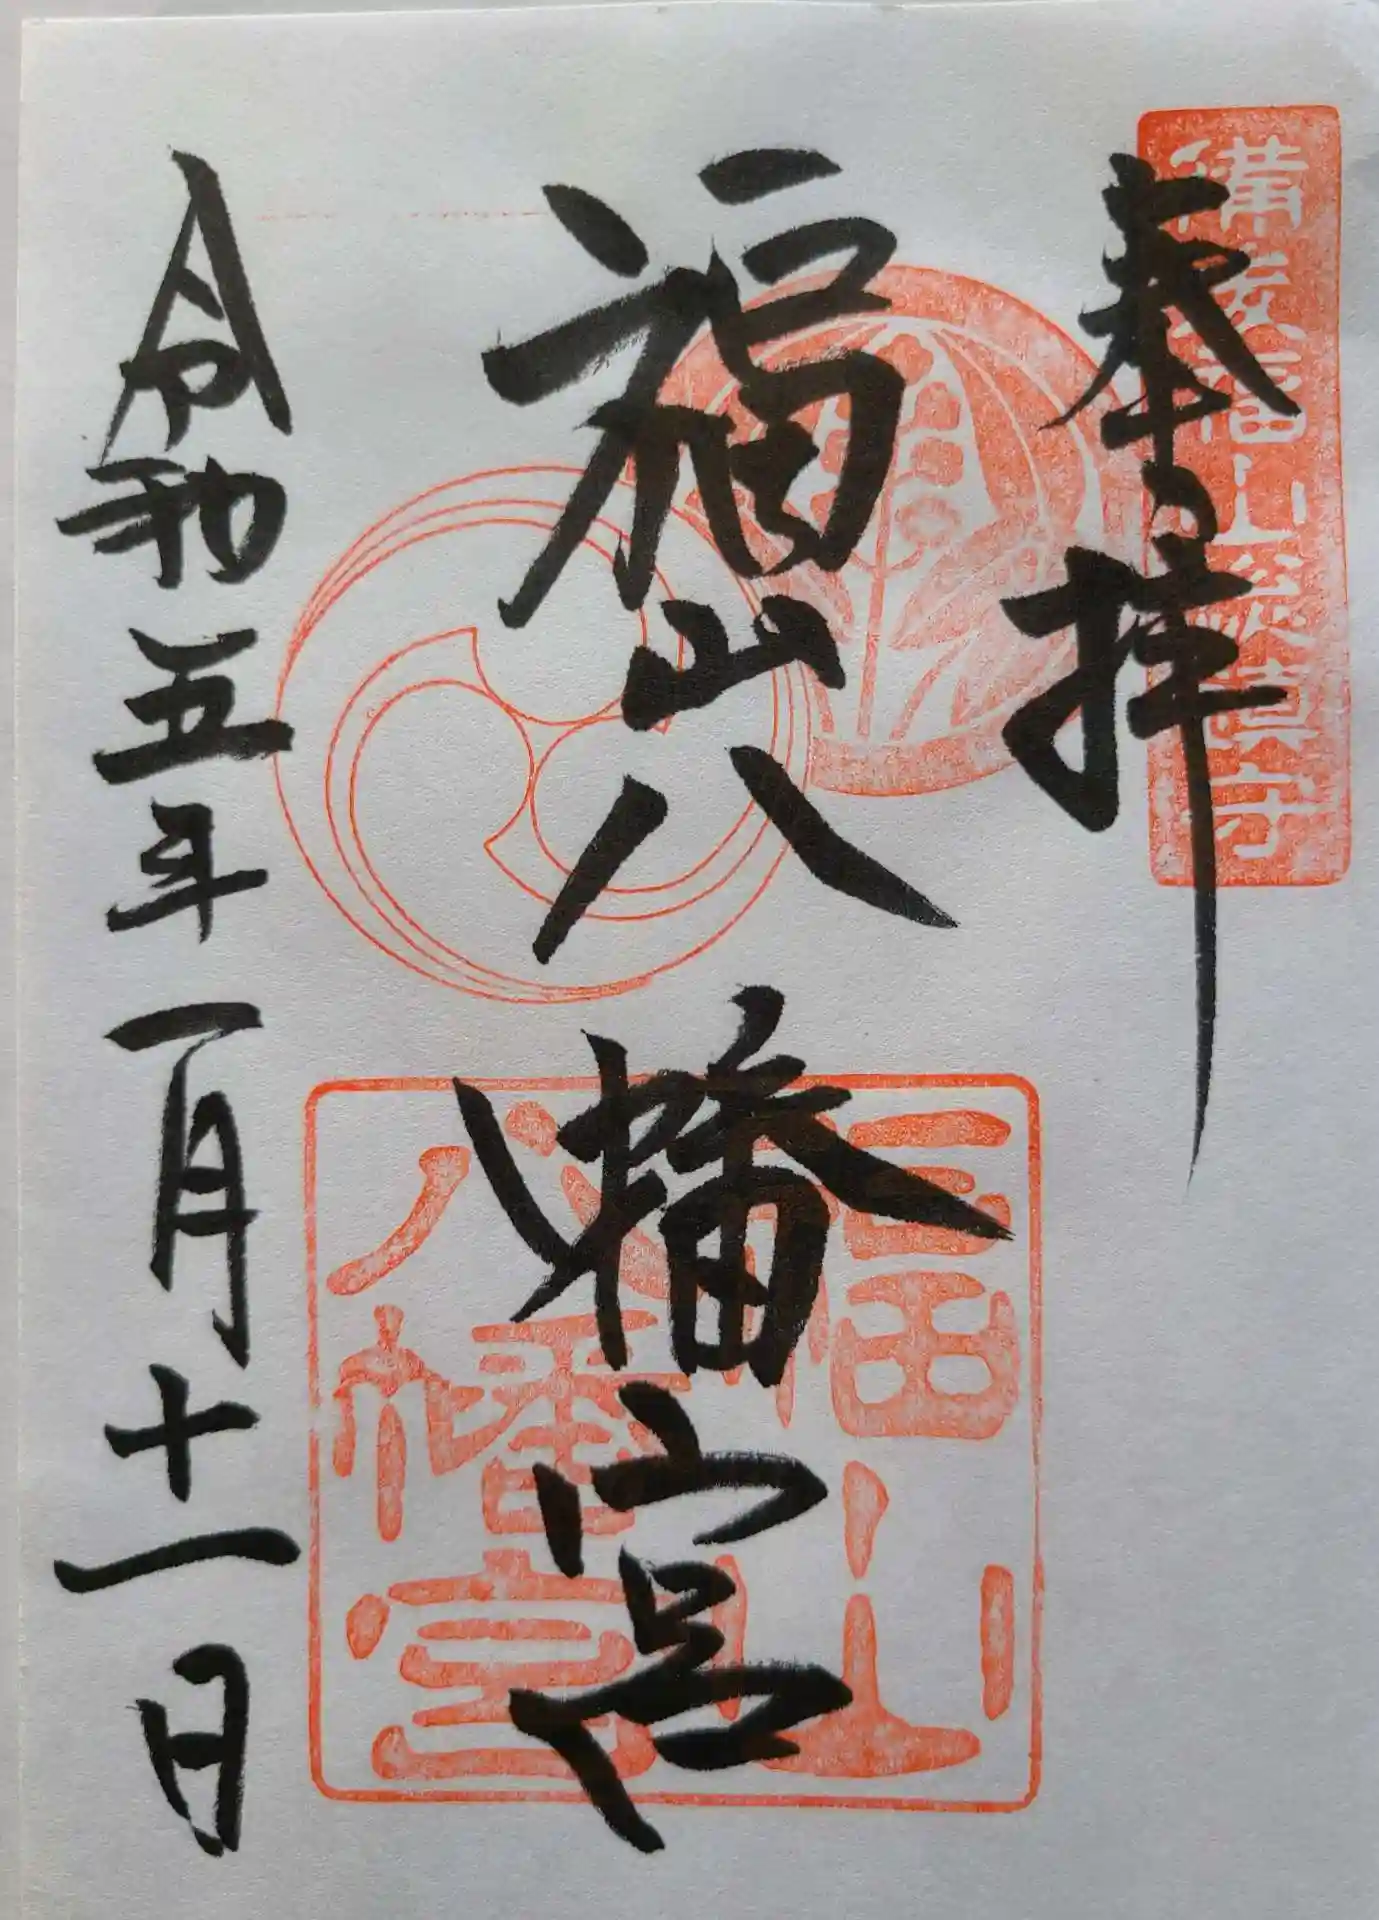 備後福山総鎮守
奉拝
福山八幡宮
福山
八幡宮
令和五年一月十一日